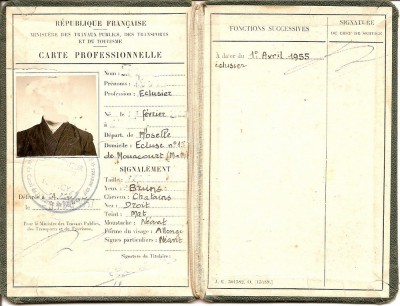 RÉPUBLIQUE FRANÇAISE
MINISTÈRE DES TRAVAUX PUBLICS, DES TRANSPORTS
ET DU TOURISME
CARTE PROFESSIONNELLE
Nom :
Prénoms :
Profession : Eclusier
Né le février
à
Départ. de Moselle
Domicile : Ecluse n°15
de Mouacourt (M-M)
SIGNALEMENT
Taille :
Yeux : Bruns
Cheveux : Chatains
Nez : Droit
Teint : Mat
Moustache : Néant
Forme du visage : Allongé
Signes particuliers : Néant
Signature du Titulaire :
Délivrée à
Pour le Ministre des Travaux Publics,
des Transports et du Tourisme,
FONCTIONS SUCCESSIVES
SIGNATURE
DU CHEF DE SERVICE
A dater du 1er Avril 1955
éclusier